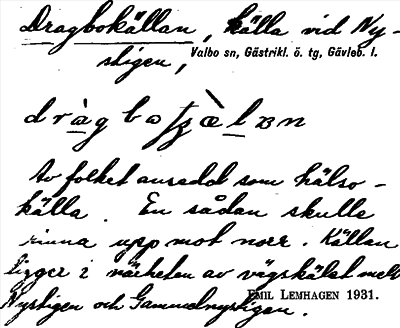 Dragbokällan, källa vid Ny-
stigen,
Valbo sn, Gästrikl. ö. tg, Gävleb. l.
Av folket ansedd som hälso-
källa. En sådan skulle
rinna upp mot norr. Källan
ligger i närheten av vägskälet mell
Nystigen och Gammelnystigen.
EMIL LEMHAGEN 1931.